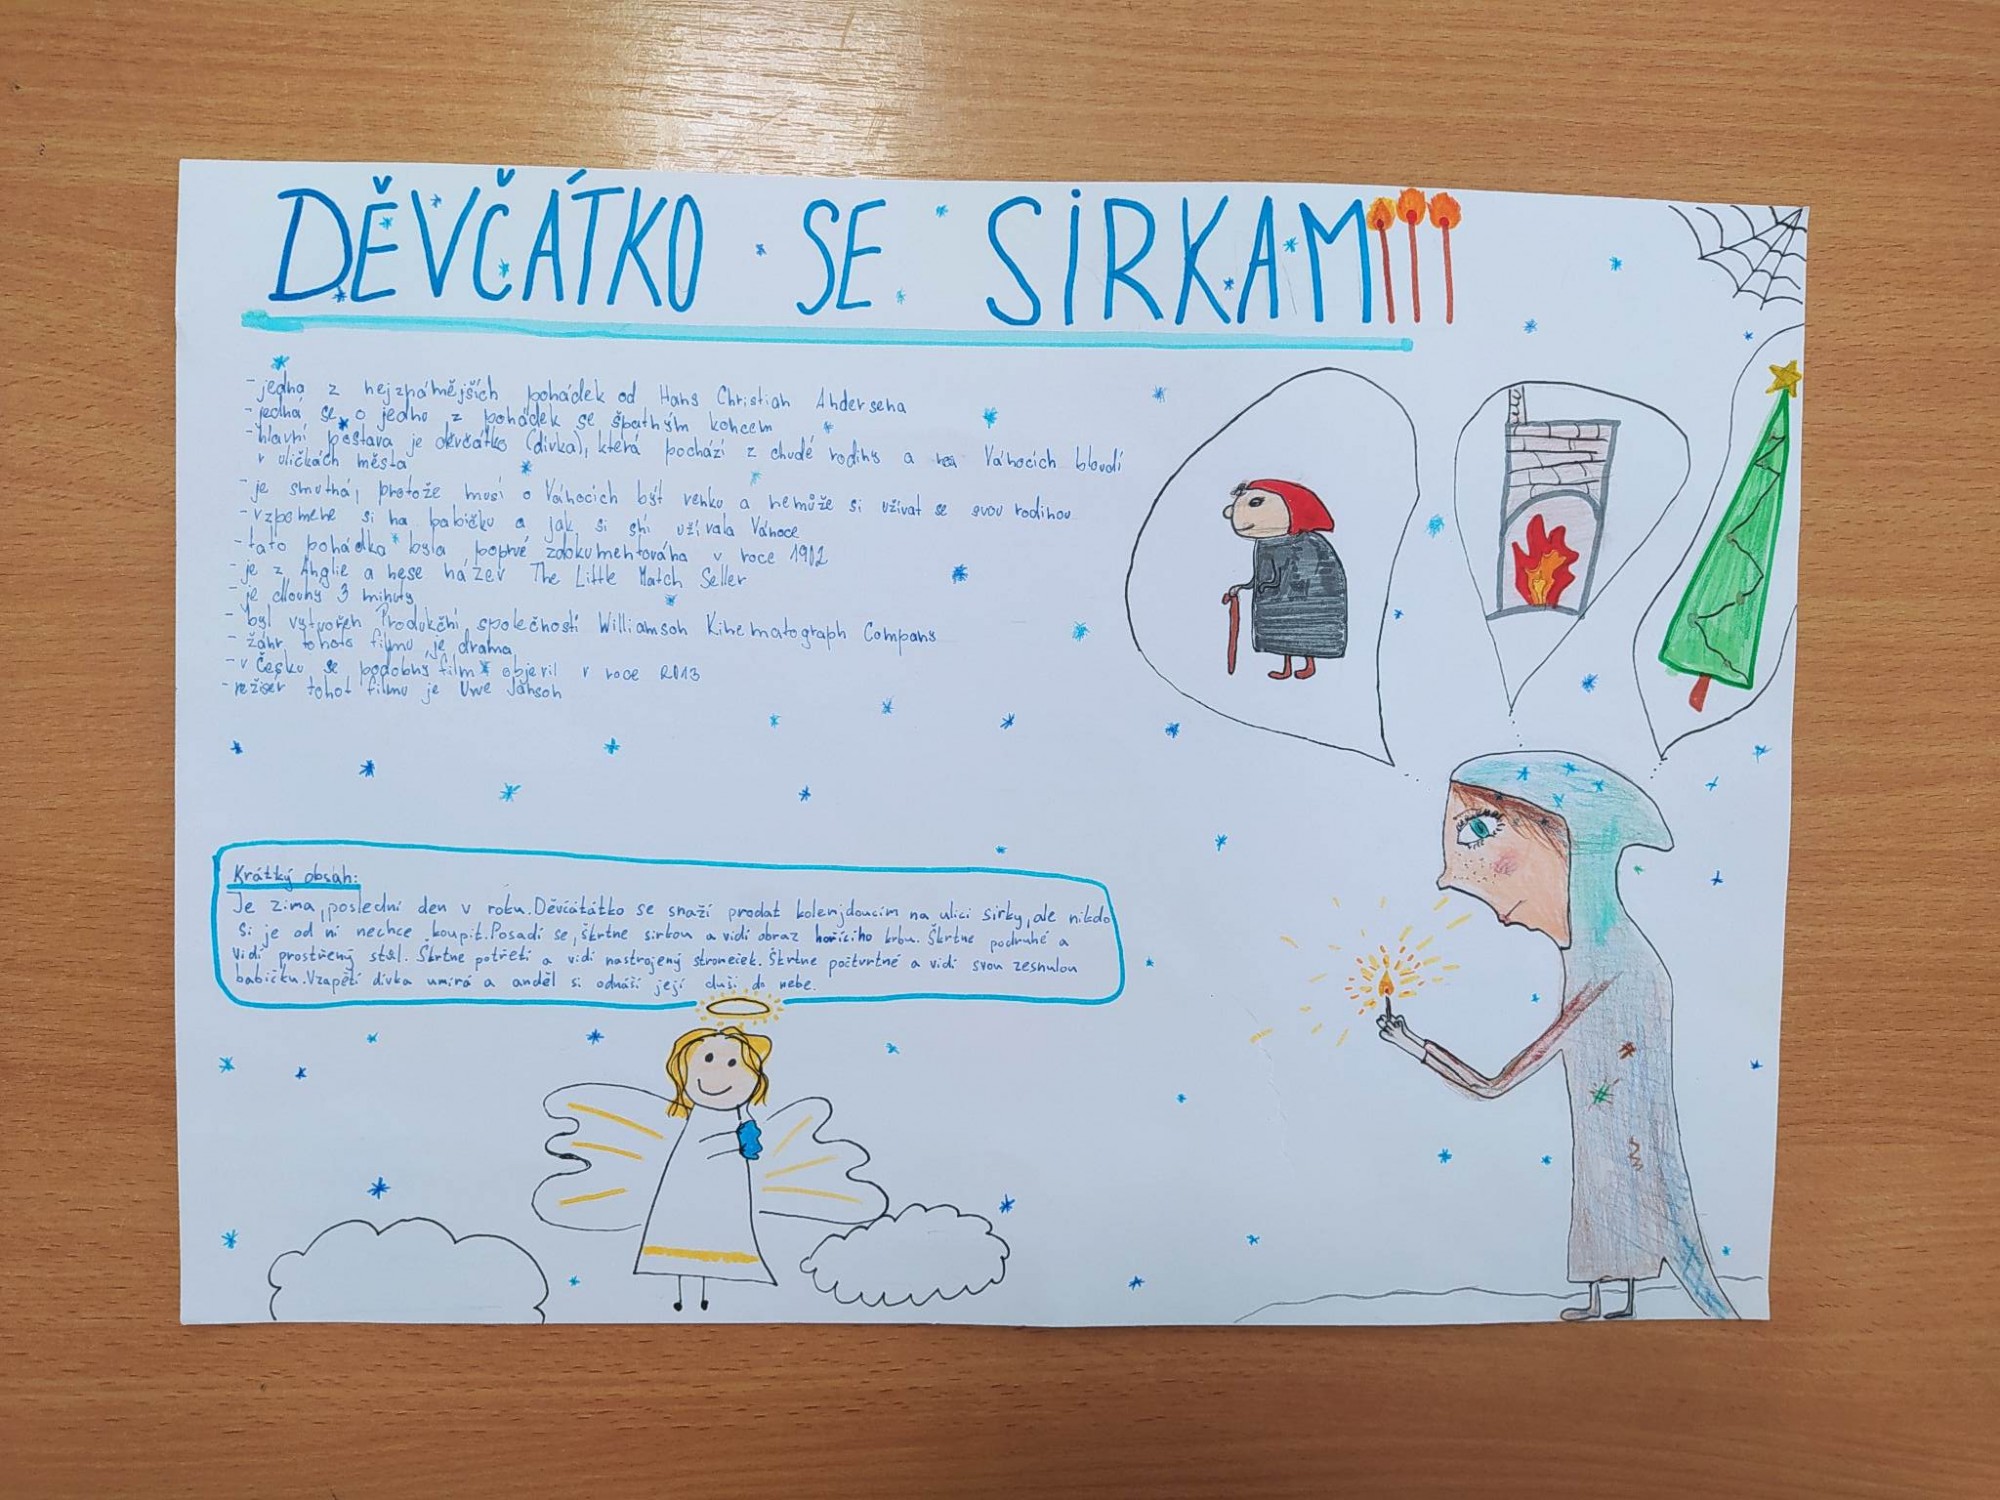 DĚVČÁTKO SE SIRKAMI
- jedna z nejznámějších pohádek od Hans Christian Andersena
- jedná se o jednu z pohádek se špatným koncem
- hlavní postava je děvčátko (dívka), která pochází z chudé rodiny a na Vánocích bloudí
v uličkách města
- je smutná, protože musí o Vánocích být venku a nemůže si užívat se svou rodinou
- vzpomene si na babičku a jak si s ní užívala Vánoce
- tato pohádka byla poprvé zdokumentována v roce 1902
- je z Anglie a nese název The Little Match Seller
- je dlouhý 3 minuty
- byl vytvořen Produkční společností Williamson Kinematograph Company
- žánr tohoto filmu je drama
- v Česku se podobný film objevil v roce 2013
- režisér tohot filmu je Uwe Janson
Krátký obsah:
Je zima, poslední den v roku. Děvčátátko se snaží prodat kolemjdoucím na ulici sirky, ale nikdo
si je od ní nechce koupit. Posadí se, škrtne sirkou a vidí obraz hořícího krbu. Škrtne podruhé a
vidí prostřený stůl. Škrtne potřetí a vidí nastrojený stromeček. Škrtne počtvrtné a vidí svou zesnulou
babičku. Vzapětí dívka umírá a anděl si odnáší její duši do nebe.